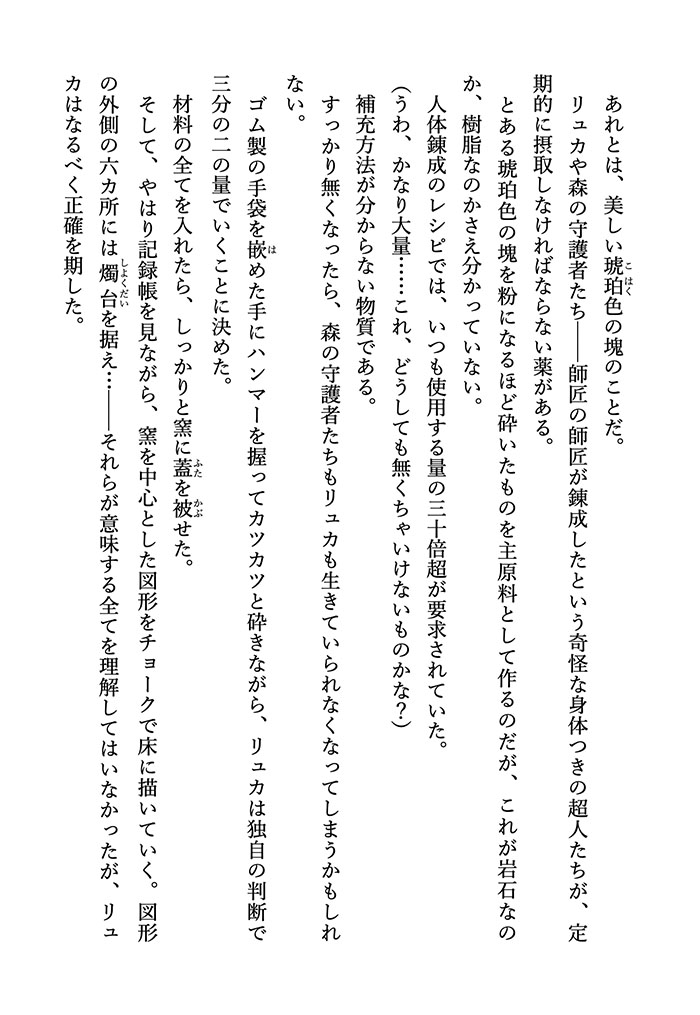 あれとは、美しい琥珀色の塊のことだ。
　リュカや森の守護者たち――師匠の師匠が錬成したという奇怪な身体つきの超人たちが、定
期的に摂取しなければならない薬がある。
　とある琥珀色の塊を粉になるほど砕いたものを主原料として作るのだが、これが岩石なの
か、樹脂なのかさえ分かっていない。
　人体錬成のレシピでは、いつも使用する量の三十倍超が要求されていた。
（うわ、かなり大量……これ、どうしても無くちゃいけないものかな？）
　補充方法が分からない物質である。
　すっかり無くなったら、森の守護者たちもリュカも生きていられなくなってしまうかもしれ
ない。
　ゴム製の手袋を嵌めた手にハンマーを握ってカツカツと砕きながら、リュカは独自の判断で
三分の二の量でいくことに決めた。
　材料の全てを入れたら、しっかりと窯に蓋を被せた。
　そして、やはり記録帳を見ながら、窯を中心とした図形をチョークで床に描いていく。図形
の外側の六カ所には燭台を据え…――それらが意味する全てを理解してはいなかったが、リュ
カはなるべく正確を期した。